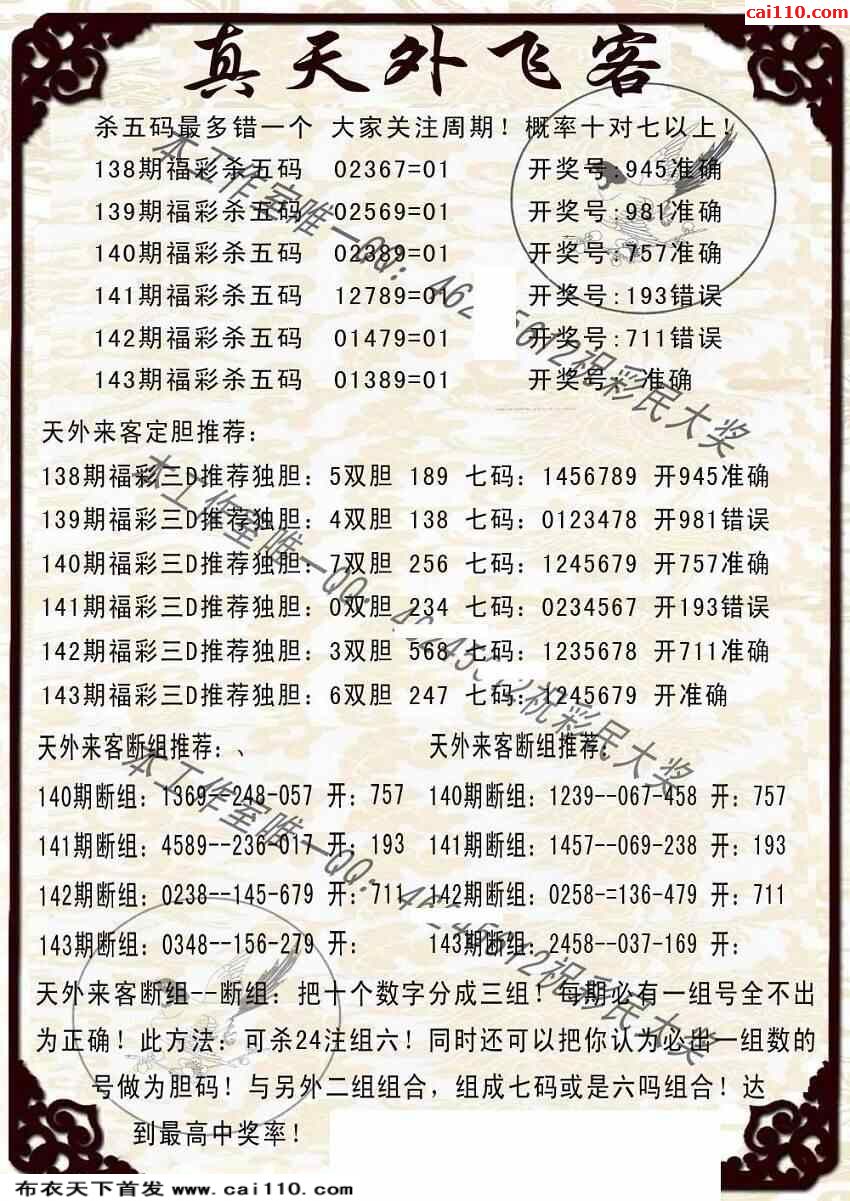 cai110.com
真天外飞客
杀五码最多错一个 大家关注周期！概率十对七以上！
138期福彩杀五码 02367=01 开奖号:945准确
139期福彩杀五码 02569=01 开奖号:981准确
140期福彩杀五码 02389=01 开奖号:757准确
141期福彩杀五码 12789=01 开奖号:193错误
142期福彩杀五码 01479=01 开奖号:711错误
143期福彩杀五码 01389=01 开奖号: 准确
天外来客定胆推荐：
138期福彩三D推荐独胆：5双胆 189 七码：1456789 开945准确
139期福彩三D推荐独胆：4双胆 138 七码：0123478 开981错误
140期福彩三D推荐独胆：7双胆 256 七码：1245679 开757准确
141期福彩三D推荐独胆：0双胆 234 七码：0234567 开193错误
142期福彩三D推荐独胆：3双胆 568 七码：1235678 开711准确
143期福彩三D推荐独胆：6双胆 247 七码：1245679 开准确
天外来客断组推荐：、 天外来客断组推荐：
140期断组：1369--248-057 开：757 140期断组：1239--067-458 开：757
141期断组：4589--236-017 开：193 141期断组：1457--069-238 开：193
142期断组：0238--145-679 开：711 142期断组：0258-=136-479 开：711
143期断组：0348--156-279 开： 143期断组：2458--037-169 开：
天外来客断组--断组：把十个数字分成三组！每期必有一组号全不出
为正确！此方法：可杀24注组六！同时还可以把你认为必出一组数的
号做为胆码！与另外二组组合，组成七码或是六吗组合！达
到最高中奖率！
本工作室唯一QQ：462 5612祝彩民大奖
本工作室唯一QQ：46245 祝彩民大奖
本工作室唯一QQ：46245612祝彩民大奖
布衣天下首发 www.cai110.com